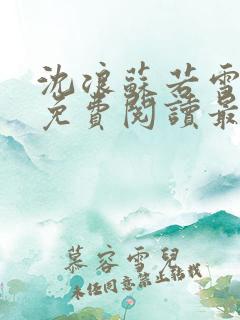 沈浪蘇若雪
免費閱讀最
慕容雪兒
未經同意禁止轉載